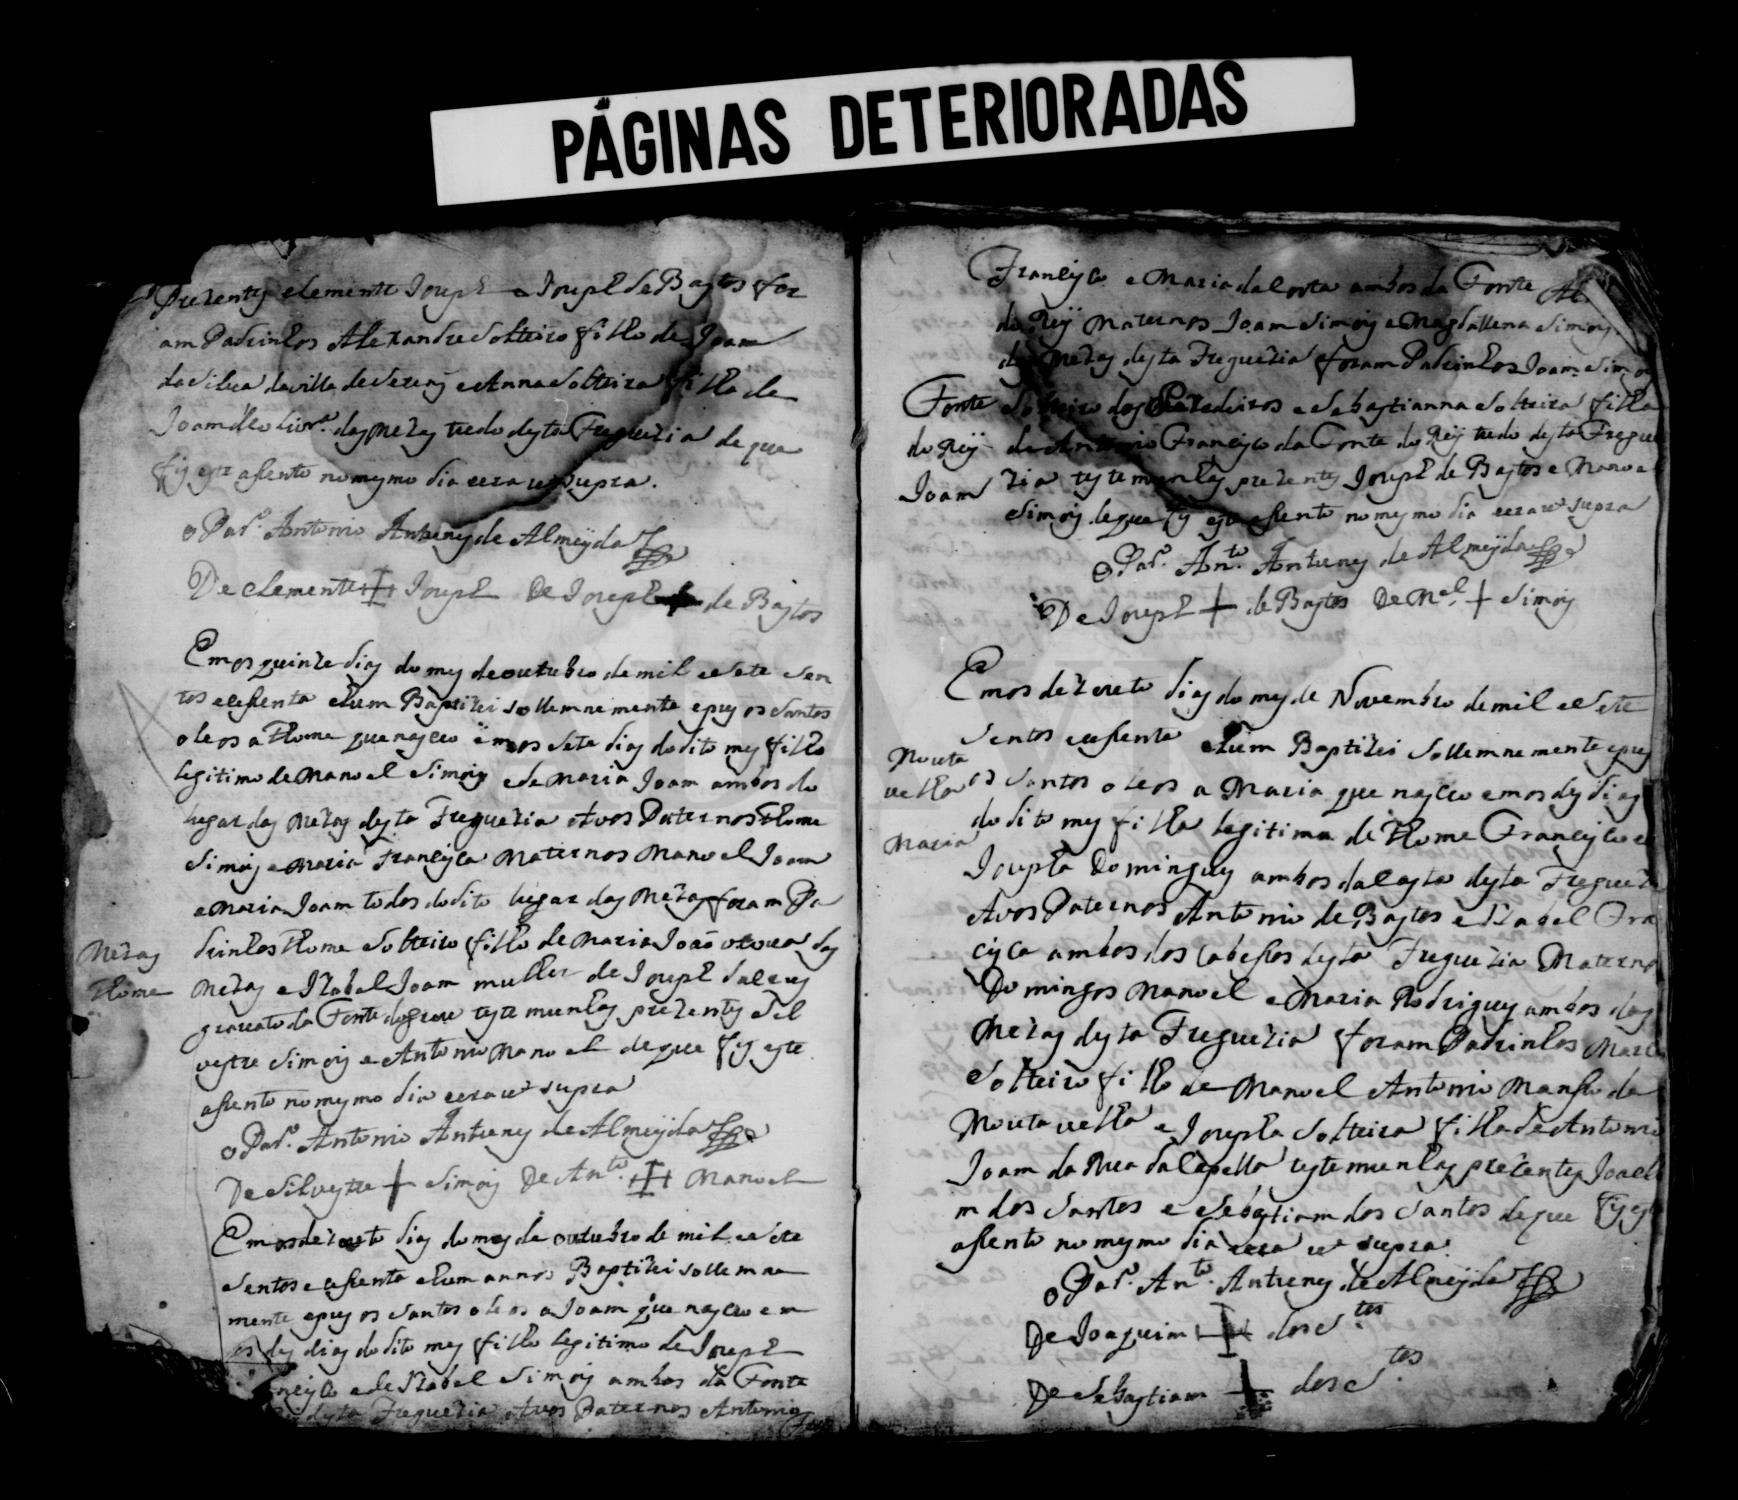 PÁGINAS DETERIORADAS
Prezentes clemente Joseph e Joseph de Bastos for
am Padrinhos Alexandre Solteiro filho de Joam
da Silva da villa de e Anna Solteira filha de
Joam de oliur.ª das Mezas tudo desta Freguezia de que
fis este asento no mesmo dia eera ut supra.
o Par.º Antonio Antunes de Almeÿda
De clemente Joseph De Joseph de Bastos
Emos quinze dias do mes de outubro de mil e Sete Sen
tos e cesenta ehum Baptizei sollemnemente epus os Santos
oleos a Thome que nasceo emos Sete dias do dito mes filho
legitimo de Manoel Simois e de Maria Joam ambos do
lugar das Mezas desta Freguezia Avos Paternos Thome
Simois e Maria Francisca Maternos Manoel Joam
e Maria Joam todos do dito lugar das Mezas foram Pa
Mezas
Thome
drinhos Thome Solteiro filho de Maria João viuva das
Mezas e Izabel Joam mulher de Joseph
da Fonte testemunhas prezentes Sil
vestre Simois e Antonio Manoel de que fis este
asento no mesmo dia eera ut supra
o Par.º Antonio Antunes de Almeÿda
De Silvestre Simois De Ant.º Manoel
Emos dezoito dias do mes de outubro de mil e Sete
Sentos e cesenta ehum annos Baptizei sollemne
mente epus os Santos oleos a Joam que nasceo em
os des dias do dito mes filho legitimo de Joseph
e de Izabel Simois ambos da Fonte
desta Freguezia Avos Paternos Antonio
Francisco e Maria da Costa ambos da Fonte
do Reÿ Maternos Joam Simois e Magdallena Simois
das Mezas desta Freguezia foram Padrinhos Joam Simois
Fonte
do Reÿ
Joam
Solteiro dos e Sebastianna Solteira filha
de Antonio Francisco da Fonte do Reÿ tudo desta Fregue
zia testemunhas prezentes Joseph de Bastos e Manoel
Simois de que fis este asento no mesmo dia eera ut supra
o Par.º An.to Antunes de Almeÿda
De Joseph de Bastos De M.el Simois
Emos dezoito dias do mes de Novembro de mil e Sete
Sentos e cesenta ehum Baptizei Sollemnemente epus
Mouta
velha
Maria
os Santos oleos a Maria que nasceo emos des dias
do dito mes filha legitima de Thome Francisco e
Josepha Domingues ambos da desta Freguezia
Avos Paternos Antonio de Bastos e Izabel Fran
cisca ambos dos Cabesos desta Freguezia Materno
Domingos Manoel e Maria Rodrigues ambos das
Mezas desta Freguezia foram Padrinhos
Solteiro filho de Manoel Antonio Manso da
Mouta velha e Josepha Solteira filha de Antonio
Joam da testemunhas prezentes Joaqui
m dos Santos e Sebastiam dos Santos de que fis este
asento no mesmo dia eera ut supra.
o Par.º An.to Antunes de Almeÿda
De Joaquim dos S.tos
De Sebastiam dos S.tos